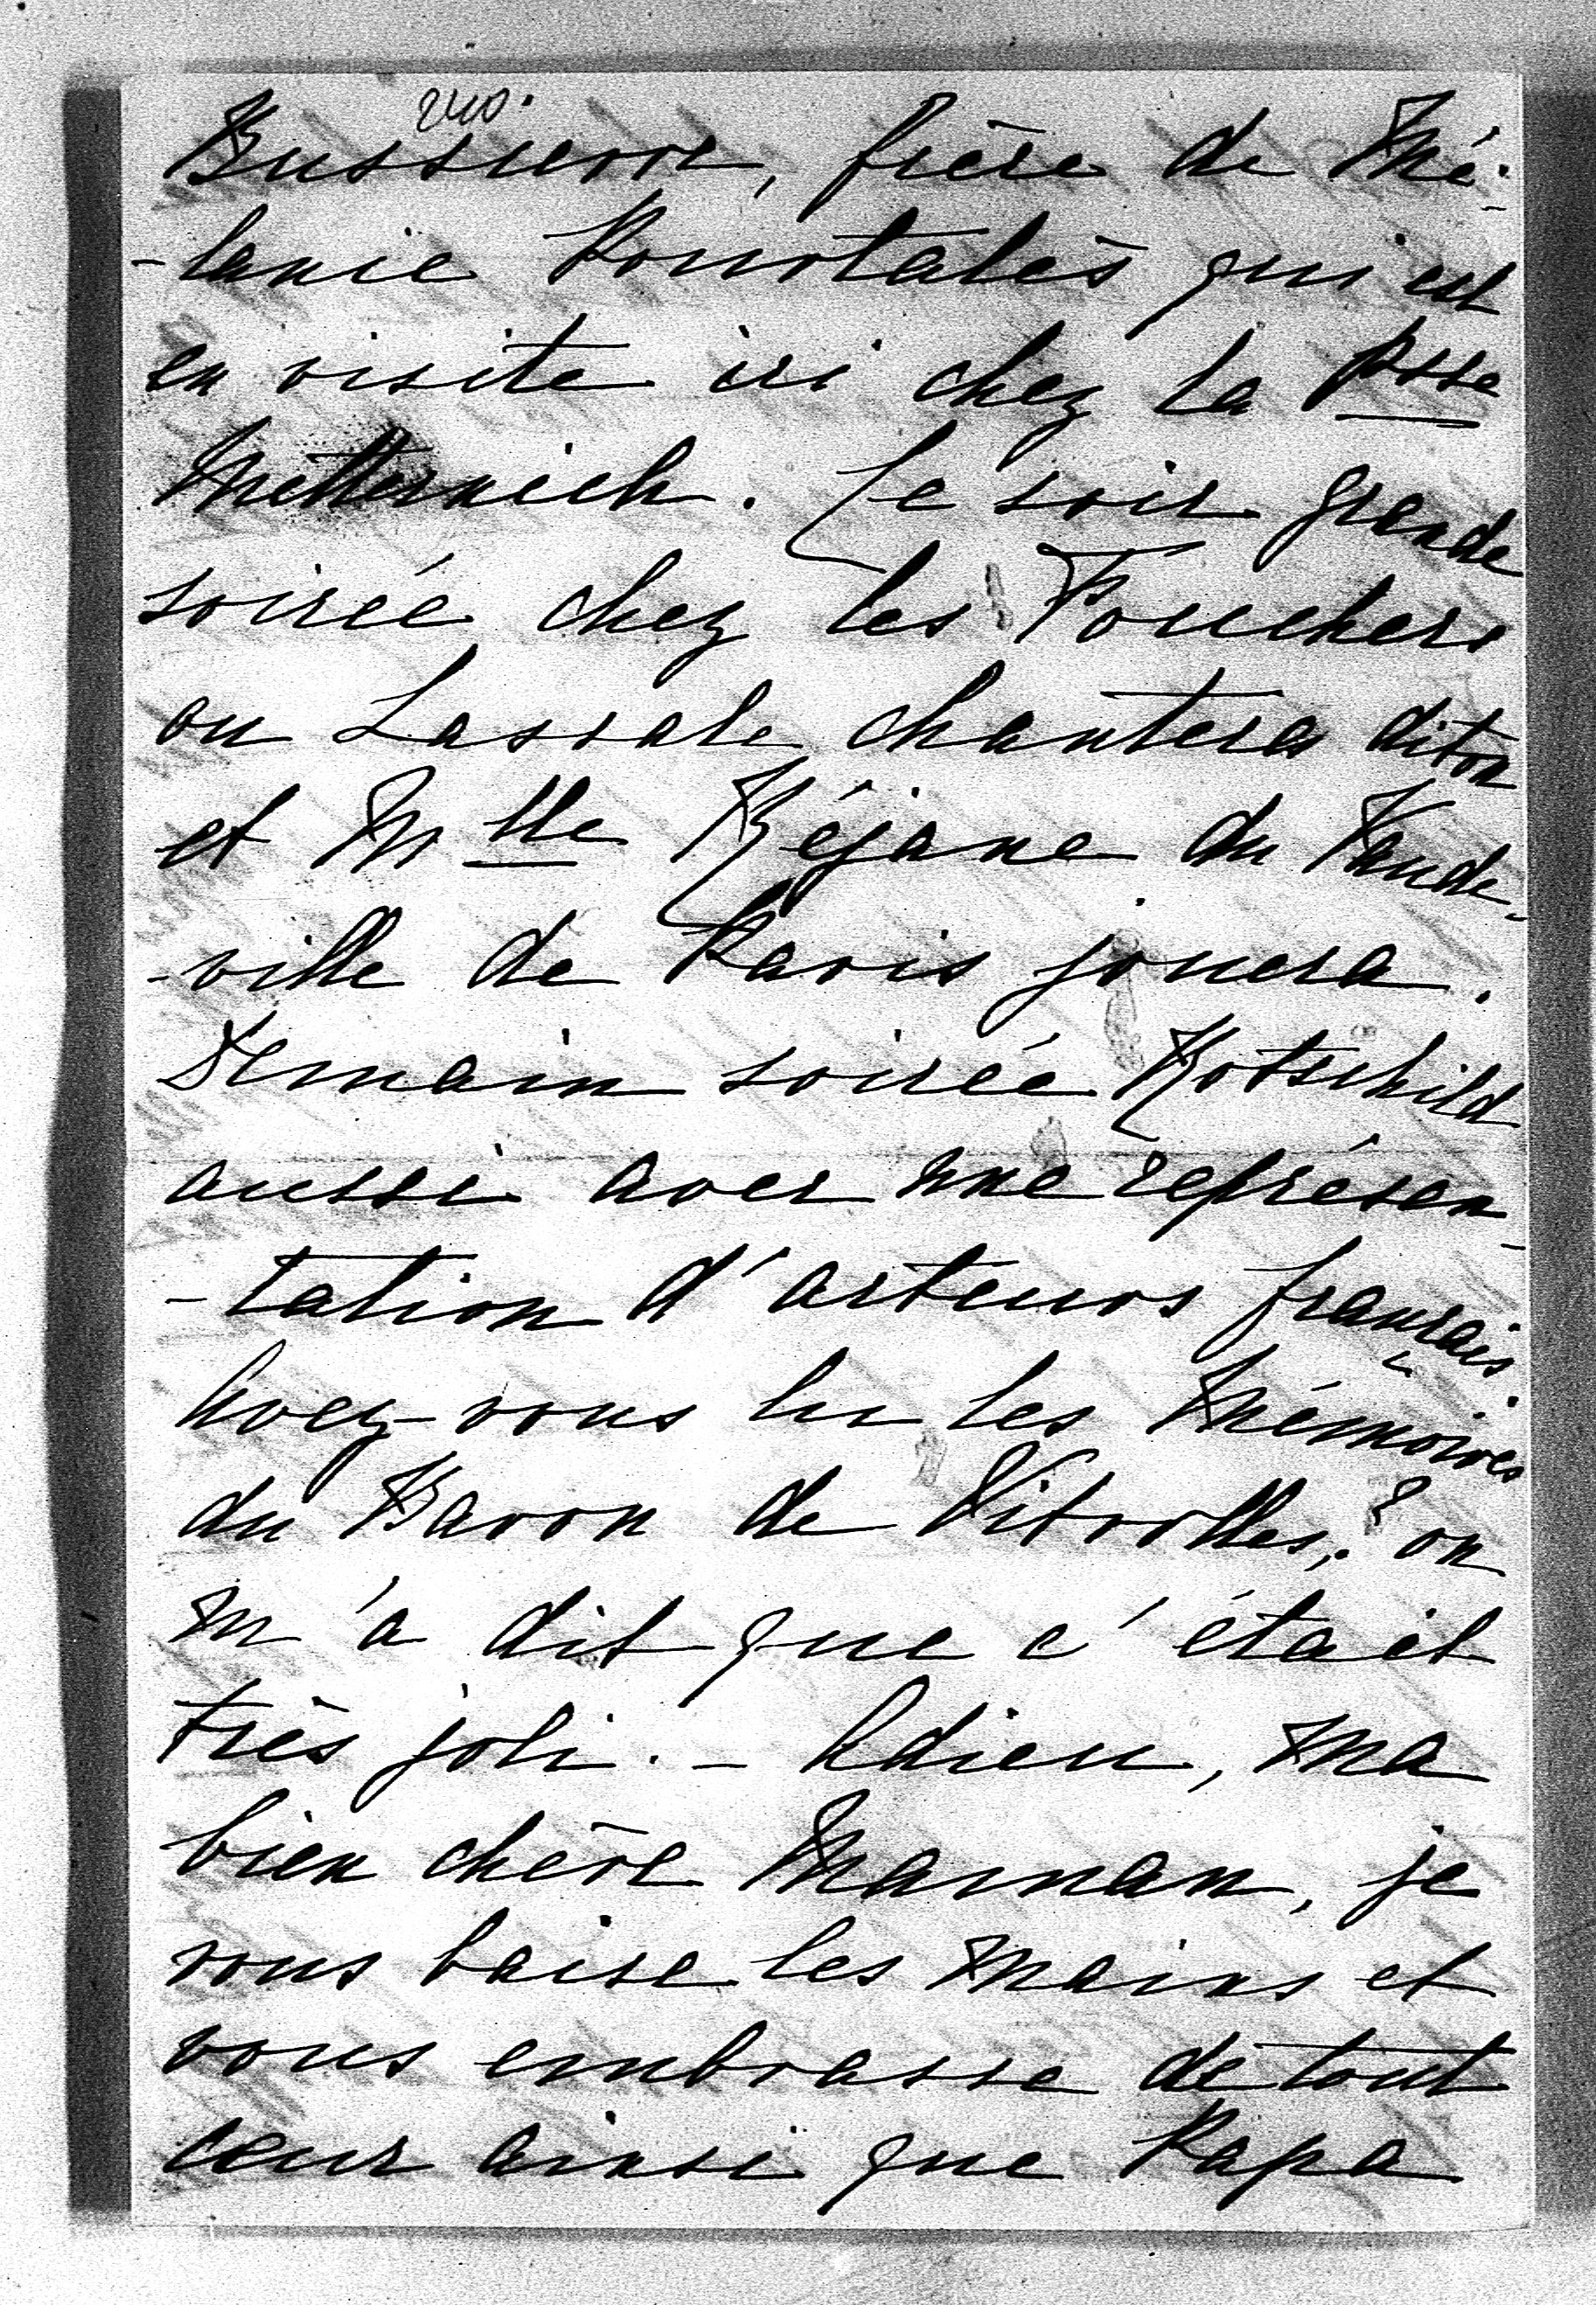 240.
Bussierre, frère de Mé-
-lanie Pourtalès qui est
en visite ici chez la Psse
Metternich. Le soir grande
soirée chez les Fouchers
ou Lassale chantera diton
et Mlle Réjane du Vaude-
-ville de Paris jouera.
Demain soirée Rotschild
aussi avec une représen-
-tation d'acteurs français.
Avez-vous lu les Mémoires
du Baron de Vitrolles,? on
m'a dit que c'était
très joli. – Adieu, ma
bien chère Maman, je
vous baise les mains et
vous embrasse de tout
cœur ainsi que Papa